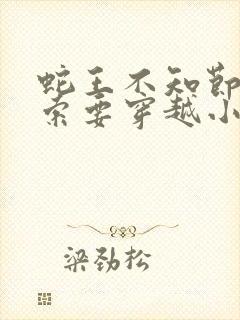 蛇王不知节
索要穿越小
梁劲松